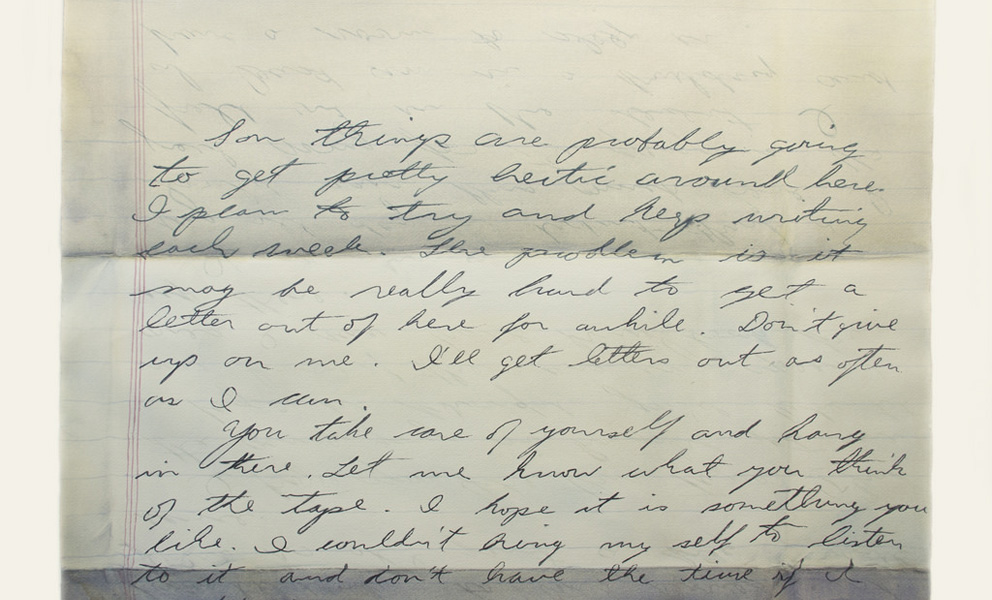 Son things are probably going
to get pretty hectic around here.
I plan to try and keep writing
each week. The problem is it
may be really hard to get a
letter out of here for awhile. Don't give
up on me. I'll get letters out as often
as I can.
You take care of yourself and hang
in there. Let me know what you think
of the tape. I hope it is something you
like. I couldn't bring my self to listen
to it and don't have the time if I